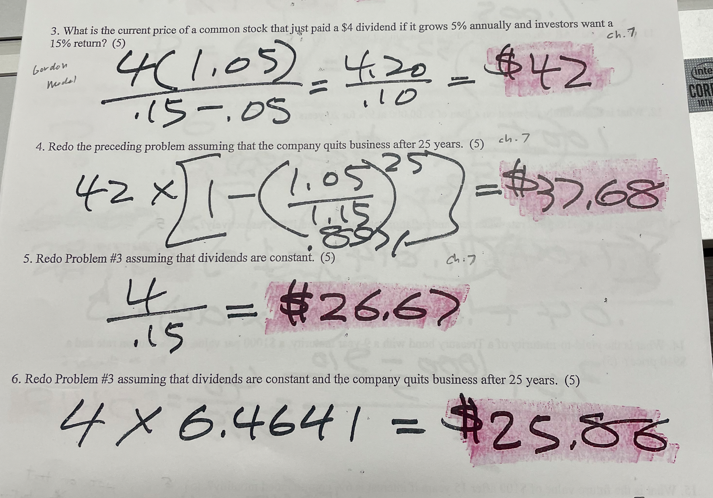 3. What is the current price of a common stock that just paid a $4 dividend if it grows 5% annually and investors want a
15% return? (5)
ch.7
Gordon
Model
4(1.05) / .15-.05 = 4.20 / .10 = $42
4. Redo the preceding problem assuming that the company quits business after 25 years. (5)
ch.7
42 × [1-(1.05/1.15)^25] = $37.68
5. Redo Problem #3 assuming that dividends are constant. (5)
ch.7
4 / .15 = $26.67
6. Redo Problem #3 assuming that dividends are constant and the company quits business after 25 years. (5)
4 × 6.4641 = $25.86
inte
COR
10TH